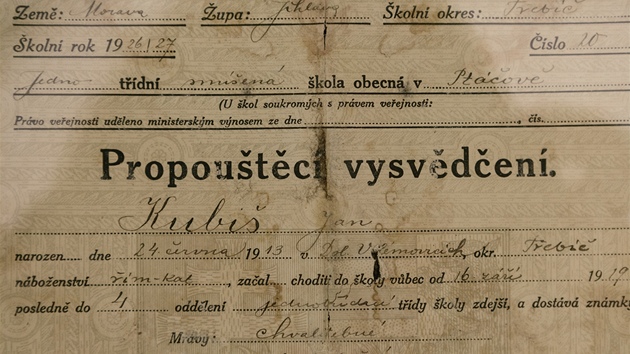 Země: Morava Župa: Jihlava Školní okres: Třebíč
Školní rok 1926/27 Číslo 20
jedno třídní smíšená škola obecná v Ptáčově
(U škol soukromých s právem veřejnosti:
Právo veřejnosti uděleno ministerským výnosem ze dne čís.
Propouštěcí vysvědčení.
Kubiš Jan
narozen dne 24 června 1913 v Dol. Vilémovicích, okr. Třebíč
náboženství řím-kat, začal choditi do školy vůbec od 16 září 1919
posledně do 4 oddělení jednotřídní třídy školy zdejší, a dostává známky
Mravy: chvalitebné